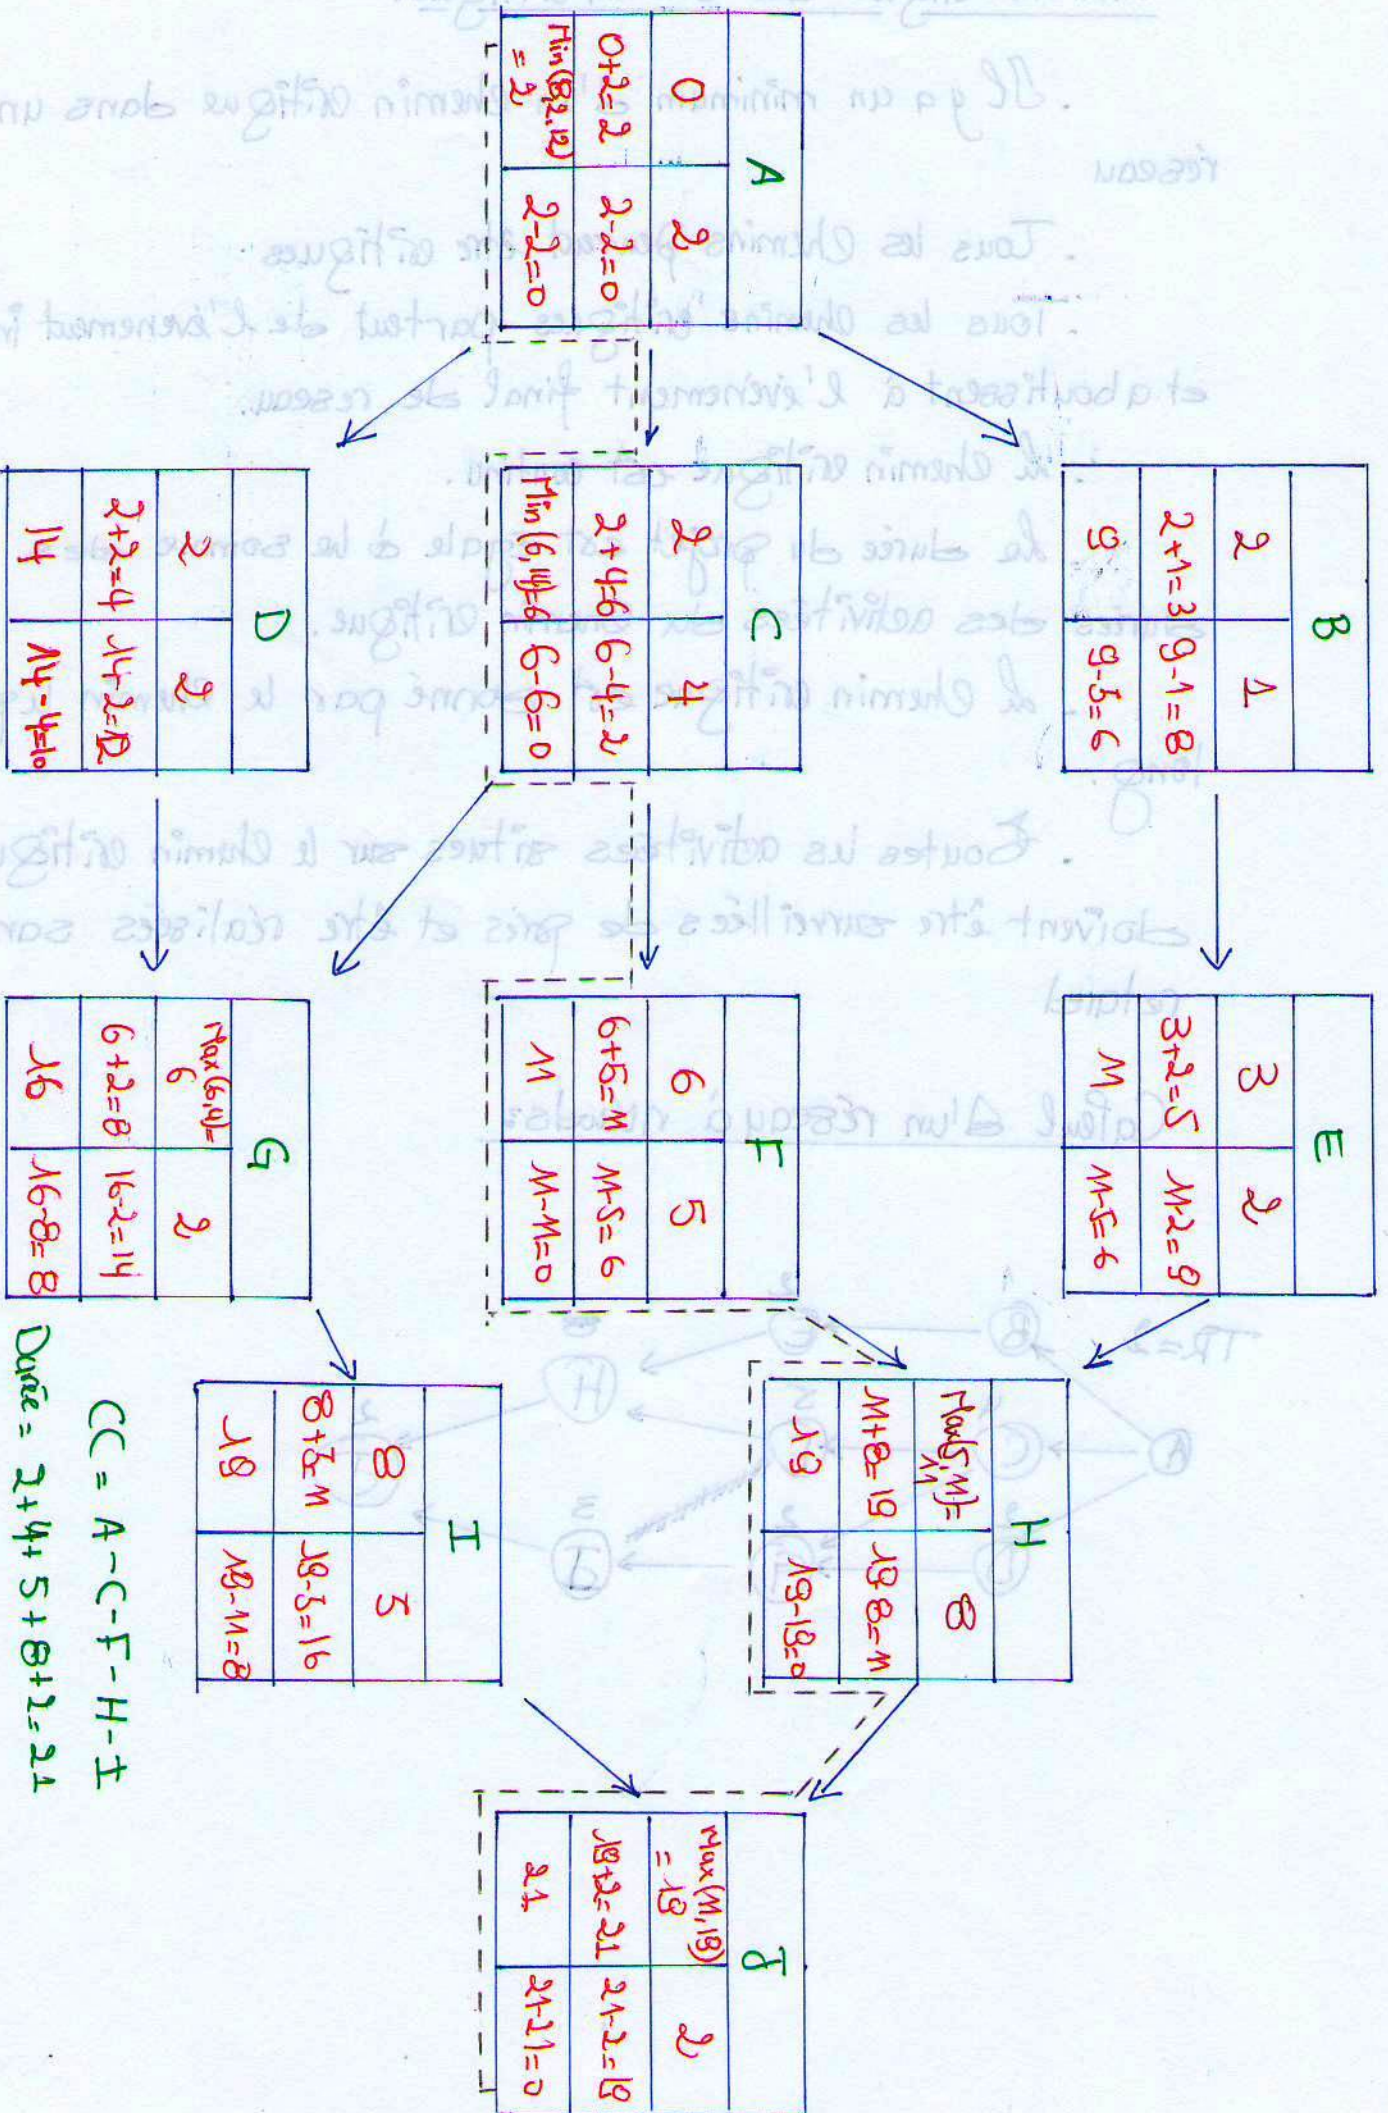 A
0 2
0+2=2 2-2=0
Min(8,2,12) 2-2=0
= 2
B
2 1
2+1=3 9-1=8
9 9-3=6
C
2 4
2+4=6 6-4=2
Min(6,14)=6 6-6=0
D
2 2
2+2=4 14-2=12
14 14-4=10
E
3 2
3+2=5 11-2=9
11 11-5=6
F
6 5
6+5=11 11-5=6
11 11-11=0
G
Max(6,4)= 2
6
6+2=8 16-2=14
16 16-8=8
H
Max(5,11)= 8
11
11+8=19 19-8=11
19 19-19=0
I
8 3
8+3=11 19-3=16
19 19-11=8
J
Max(11,19) 2
= 19
19+2=21 21-2=19
21 21-21=0
CC = A-C-F-H-I
Durée = 2+4+5+8+2=21